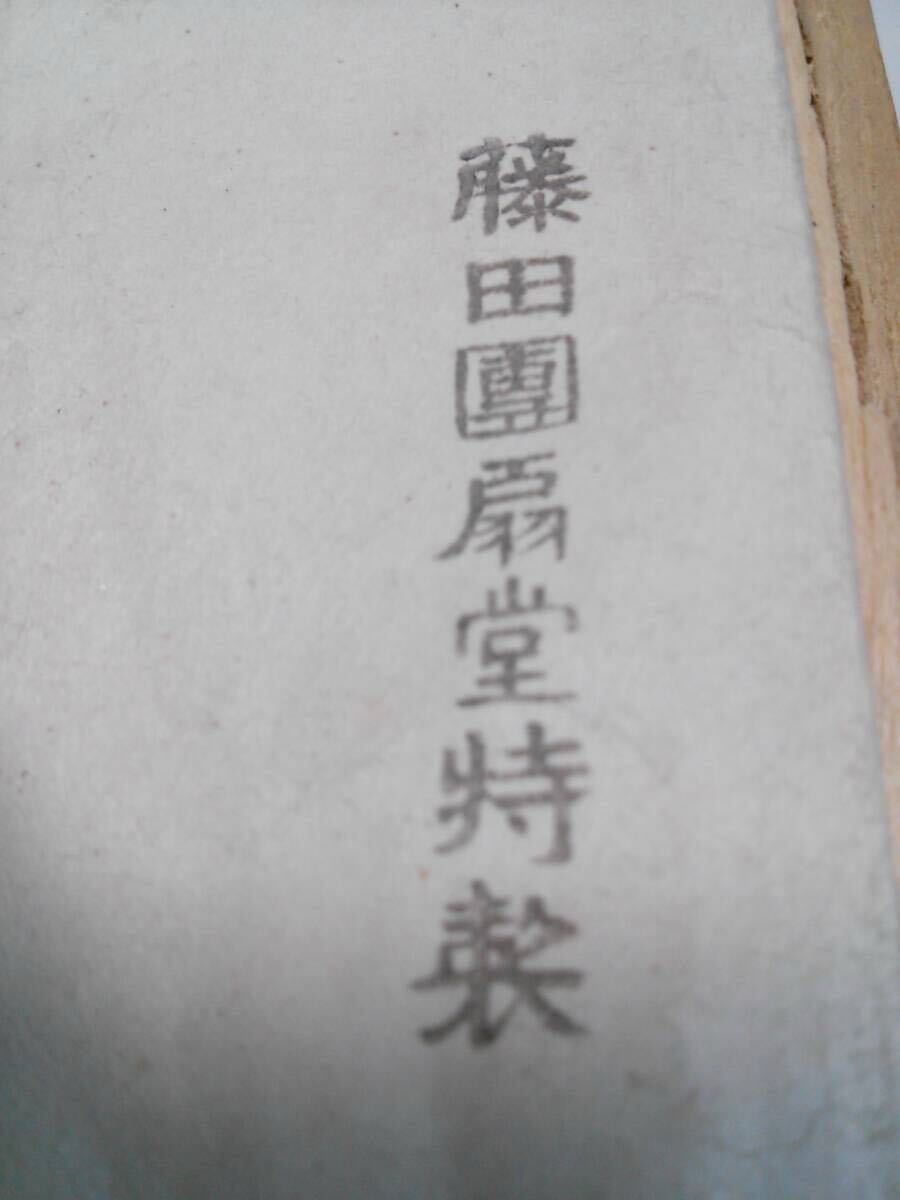 藤田團扇堂特製